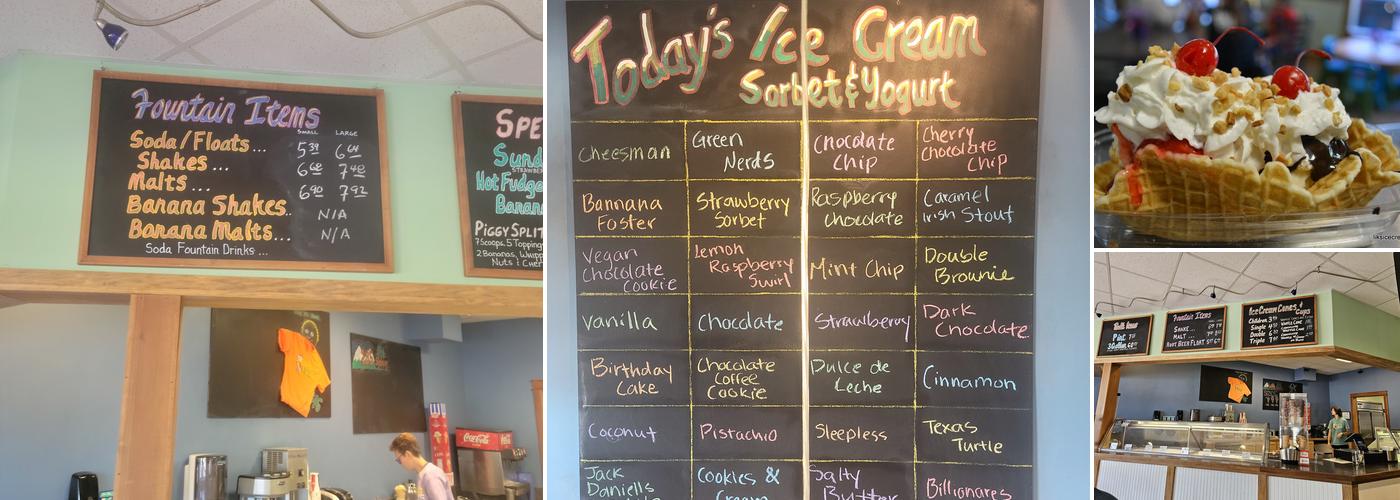 Fountain Items
SMALL LARGE
Soda/Floats... 5 39 6 64
Shakes... 6 60 7 40
Malts ... 6 90 7 92
Banana Shakes.. N/A
Banana Malts... N/A
Soda Fountain Drinks ...
SPE
Sund
Hot Fudge
Banan
PIGGY SPLIT
7 Scoops, 5 Topping
2 Bananas, Whipp
Nuts & Cher
Coca-Cola
Today's Ice Cream
Sorbet & Yogurt
Cheesman
Green
Nerds
Chocolate
Chip
Cherry
Chocolate
Chip
Bannana
Foster
Strawberry
Sorbet
Raspberry
Chocolate
Caramel
Irish Stout
Vegan
Chocolate
Cookie
Lemon
Raspberry
Swirl
Mint Chip
Double
Brownie
Vanilla
Chocolate
Strawberry
Dark
Chocolate
Birthday
Cake
Chocolate
Coffee
Cookie
Dulce de
Leche
Cinnamon
Coconut
Pistachio
Sleepless
Texas
Turtle
Jack
Daniells
Cookies &
Cream
Salty
Butter
Billionares
liksicecre
Fountain Items
SHAKE...
MALT ...
ROOT BEER FLOAT
Ice Cream Cones &
Cups
Children
Single
Double
Triple